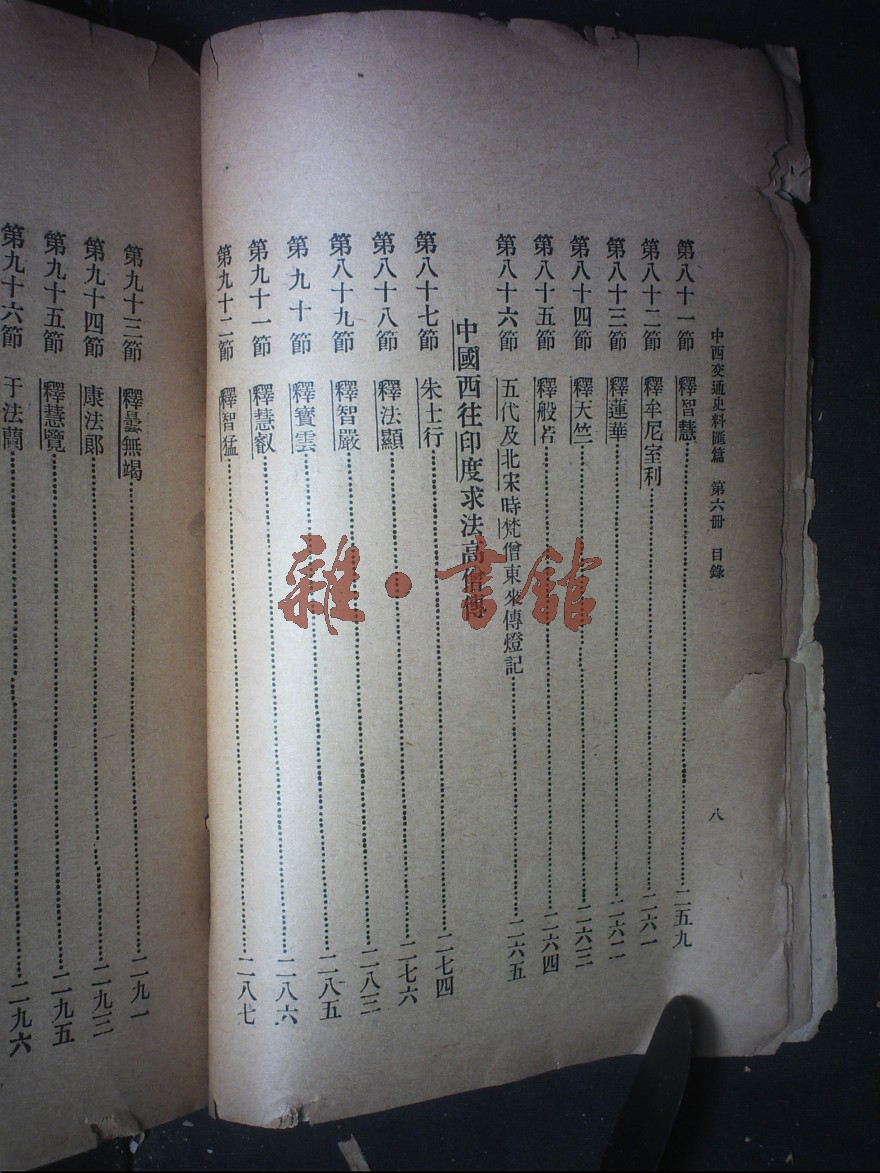 中西交通史料匯篇 第六册 目錄
八
第八十一節 釋智慧 二五九
第八十二節 釋牟尼室利 二六一
第八十三節 釋蓮華 二六二
第八十四節 釋天竺 二六三
第八十五節 釋般若 二六四
第八十六節 五代及北宋時梵僧東來傳燈記 二六五
中國西往印度求法高僧傳
第八十七節 朱士行 二七四
第八十八節 釋法顯 二七六
第八十九節 釋智嚴 二八三
第九十節 釋寶雲 二八五
第九十一節 釋慧叡 二八六
第九十二節 釋智猛 二八七
第九十三節 釋曇無竭 二九一
第九十四節 康法郎 二九三
第九十五節 釋慧覽 二九五
第九十六節 于法蘭 二九六
雜·書館